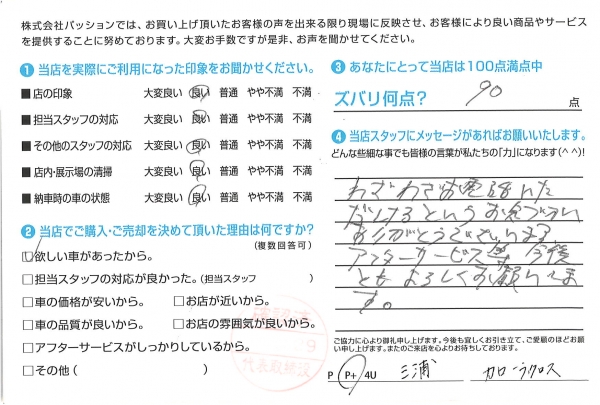 株式会社パッションでは、お買い上げ頂いたお客様の声を出来る限り現場に反映させ、お客様により良い商品やサービス
を提供することに努めております。大変お手数ですが是非、お声を聞かせてください。
❶ 当店を実際にご利用になった印象をお聞かせください。
■店の印象 大変良い 良い 普通 やや不満 不満
■担当スタッフの対応 大変良い 良い 普通 やや不満 不満
■その他のスタッフの対応 大変良い 良い 普通 やや不満 不満
■店内・展示場の清掃 大変良い 良い 普通 やや不満 不満
■納車時の車の状態 大変良い 良い 普通 やや不満 不満
❷ 当店でご購入・ご売却を決めて頂いた理由は何ですか?
(複数回答可)
□欲しい車があったから。
□担当スタッフの対応が良かった。(担当スタッフ )
□車の価格が安いから。 □お店が近いから。
□車の品質が良いから。 □お店の雰囲気が良いから。
□アフターサービスがしっかりしているから。
□その他( )
代表取締役
❸ あなたにとって当店は100点満点中
ズバリ何点? 90 点
❹ 当店スタッフにメッセージがあればお願いいたします。
どんな些細な事でも皆様の言葉が私たちの「力」になります(^ ^)!
わざわざお電話いた
だけるというお心づかい
ありがとうございます
アフターサービス等 今後
ともよろしくお願いしま
す。
ご協力に心より御礼申し上げます。今後も宜しくお引き立て、ご愛顧のほどお願
い申し上げます。またのご来店を心よりお待ちしております。
P P+ 4U 三浦 カローラクロス